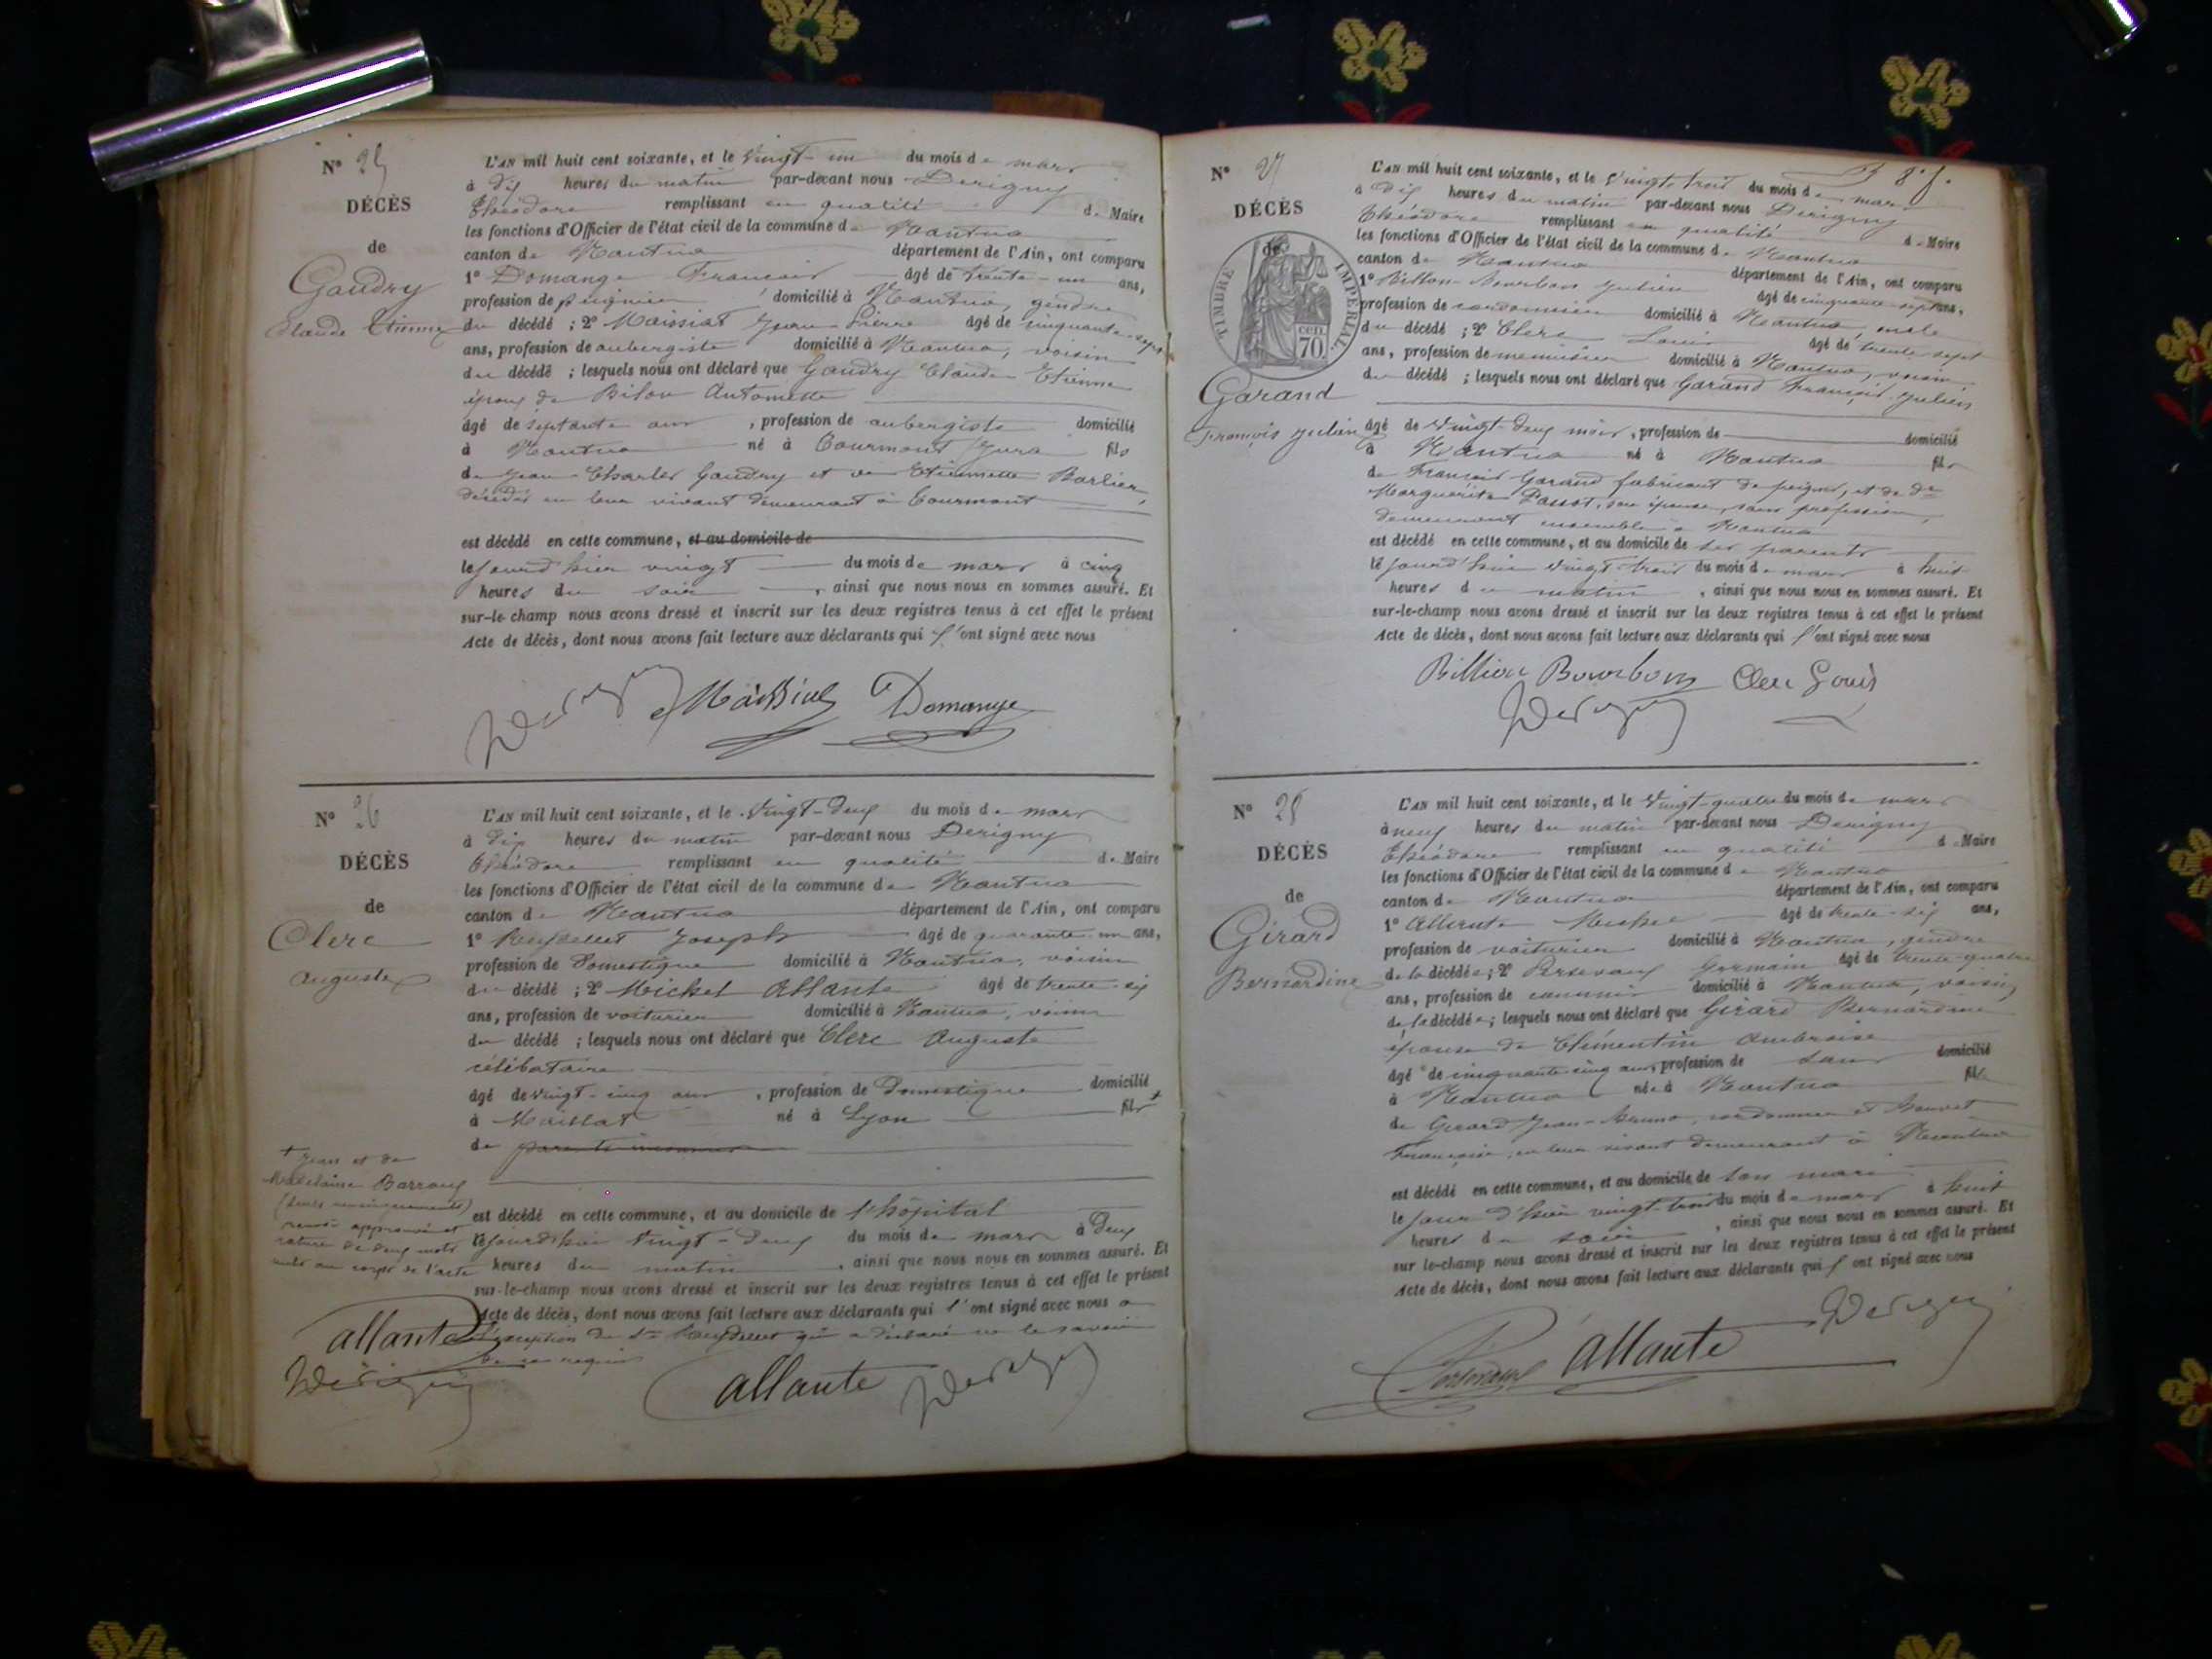 N° 25
DÉCÈS
de
Gaudry
Claude Etienne
L'AN mil huit cent soixante, et le Vingt-un du mois de mars
à dix heures du matin par-devant nous Derigny
Théodore remplissant en qualité de Maire
les fonctions d'Officier de l'état civil de la commune de Nantua
canton de Nantua département de l'Ain, ont comparu
1° Domange François âgé de trente-un ans,
profession de peignier domicilié à Nantua, gendre
du décédé ; 2° Maissiat Jean-Pierre âgé de cinquante-sept
ans, profession de aubergiste domicilié à Nantua, voisin
du décédé ; lesquels nous ont déclaré que Gaudry Claude Etienne
époux de Antoinette
âgé de septante ans, profession de aubergiste domicilié
à Nantua né à Courmont Jura fils
de Jean-Charles Gaudry et de Etiennette Barlier,
décédés en leur vivant demeurant à Courmont
est décédé en cette commune, et au domicile de
le jourd'hier vingt du mois de mars à cinq
heures du soir, ainsi que nous nous en sommes assuré. Et
sur-le-champ nous avons dressé et inscrit sur les deux registres tenus à cet effet le présent
Acte de décès, dont nous avons fait lecture aux déclarants qui l'ont signé avec nous
Derigny Maissiat Domange
N° 26
DÉCÈS
de
Clerc
Auguste
L'AN mil huit cent soixante, et le Vingt-deux du mois de mars
à dix heures du matin par-devant nous Derigny
Théodore remplissant en qualité de Maire
les fonctions d'Officier de l'état civil de la commune de Nantua
canton de Nantua département de l'Ain, ont comparu
1° Joseph âgé de quarante-un ans,
profession de Domestique domicilié à Nantua, voisin
du décédé ; 2° Michel Allante âgé de trente-six
ans, profession de voiturier domicilié à Nantua, voisin
du décédé ; lesquels nous ont déclaré que Clerc Auguste
célibataire
âgé de vingt-cinq ans, profession de Domestique domicilié
à Maillat né à Lyon fils +
de parents inconnus
+ Jean et de
Madelaine Barraux
(leurs renseignements)
renvoi approuvé et
rature de deux mots
nuls au corps de l'acte
est décédé en cette commune, et au domicile de l'hôpital
le jourd'hui vingt-deux du mois de mars à deux
heures du matin, ainsi que nous nous en sommes assuré. Et
sur-le-champ nous avons dressé et inscrit sur les deux registres tenus à cet effet le présent
Acte de décès, dont nous avons fait lecture aux déclarants qui l'ont signé avec nous a
l'exception de qui a déclaré ne le savoir
de ce requis
allante
Derigny
allante Derigny
N° 27
DÉCÈS
de
TIMBRE IMPÉRIAL
cen.
70.
Garand
François Julien
L'AN mil huit cent soixante, et le Vingt-trois du mois de mars
à dix heures du matin par-devant nous Derigny
Théodore remplissant en qualité de Maire
les fonctions d'Officier de l'état civil de la commune de Nantua
canton de Nantua département de l'Ain, ont comparu
1° Billion-Bourbon Julien âgé de cinquante-sept ans,
profession de cordonnier domicilié à Nantua, oncle
du décédé ; 2° Clerc Louis âgé de trente-sept
ans, profession de menuisier domicilié à Nantua, voisin
du décédé ; lesquels nous ont déclaré que Garand François Julien
âgé de Vingt-deux mois, profession de domicilié
à Nantua né à Nantua fils
de François Garand fabricant de peignes, et de de
Marguerite Passot, son épouse, sans profession,
demeurant ensemble à Nantua
est décédé en cette commune, et au domicile de ses parents
le jourd'hui vingt-trois du mois de mars à huit
heures du matin, ainsi que nous nous en sommes assuré. Et
sur-le-champ nous avons dressé et inscrit sur les deux registres tenus à cet effet le présent
Acte de décès, dont nous avons fait lecture aux déclarants qui l'ont signé avec nous
Billion Bourbon Clerc Louis
Derigny
N° 28
DÉCÈS
de
Girard
Bernardine
L'AN mil huit cent soixante, et le Vingt-quatre du mois de mars
à neuf heures du matin par-devant nous Derigny
Théodore remplissant en qualité de Maire
les fonctions d'Officier de l'état civil de la commune de Nantua
canton de Nantua département de l'Ain, ont comparu
1° Allante Michel âgé de trente-six ans,
profession de voiturier domicilié à Nantua, gendre
de la décédée ; 2° Germain âgé de trente-quatre
ans, profession de domicilié à Nantua, voisin
de la décédée ; lesquels nous ont déclaré que Girard Bernardine
épouse de Clémentin Ambroise
âgé de cinquante-cinq ans, profession de sans domicilié
à Nantua née à Nantua fille
de Girard Jean-Bruno, cordonnier et
Françoise, en leur vivant demeurant à Nantua
est décédé en cette commune, et au domicile de son mari
le jour d'hier vingt-trois du mois de mars à huit
heures du soir, ainsi que nous nous en sommes assuré. Et
sur-le-champ nous avons dressé et inscrit sur les deux registres tenus à cet effet le présent
Acte de décès, dont nous avons fait lecture aux déclarants qui l'ont signé avec nous
allante Derigny